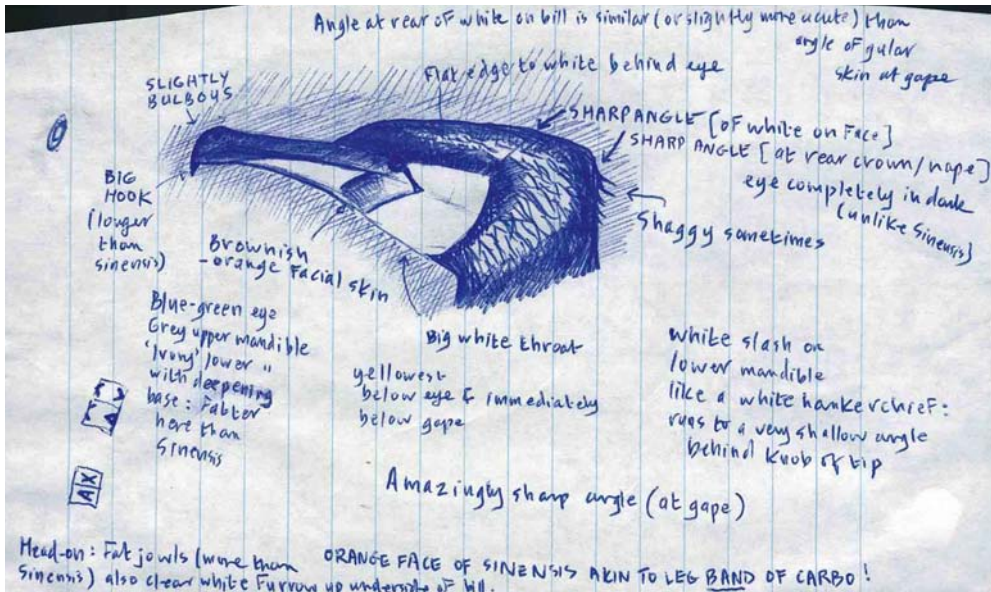 Angle at rear of white on bill is similar (or slightly more acute) than
angle of gular
skin at gape
Flat edge to white behind eye
SLIGHTLY
BULBOUS
SHARP ANGLE [of white on Face]
SHARP ANGLE [at rear crown/nape]
eye completely in dark
(unlike Sinensis)
Shaggy sometimes
BIG
HOOK
(longer
than
sinensis)
Brownish
-orange Facial skin
Big white throat
Blue-green eye
Grey upper mandible
'Ivory' lower "
with deepening
base: Fatter
here than
Sinensis
yellowest
below eye & immediately
below gape
white slash on
lower mandible
like a white hankerchief:
runs to a very shallow angle
behind Knob of tip
Amazingly sharp angle (at gape)
AX
Head-on: Fat jowls (more than
Sinensis) also clear white Furrow up underside of bill.
ORANGE FACE OF SINENSIS AKIN TO LEG BAND OF CARBO!